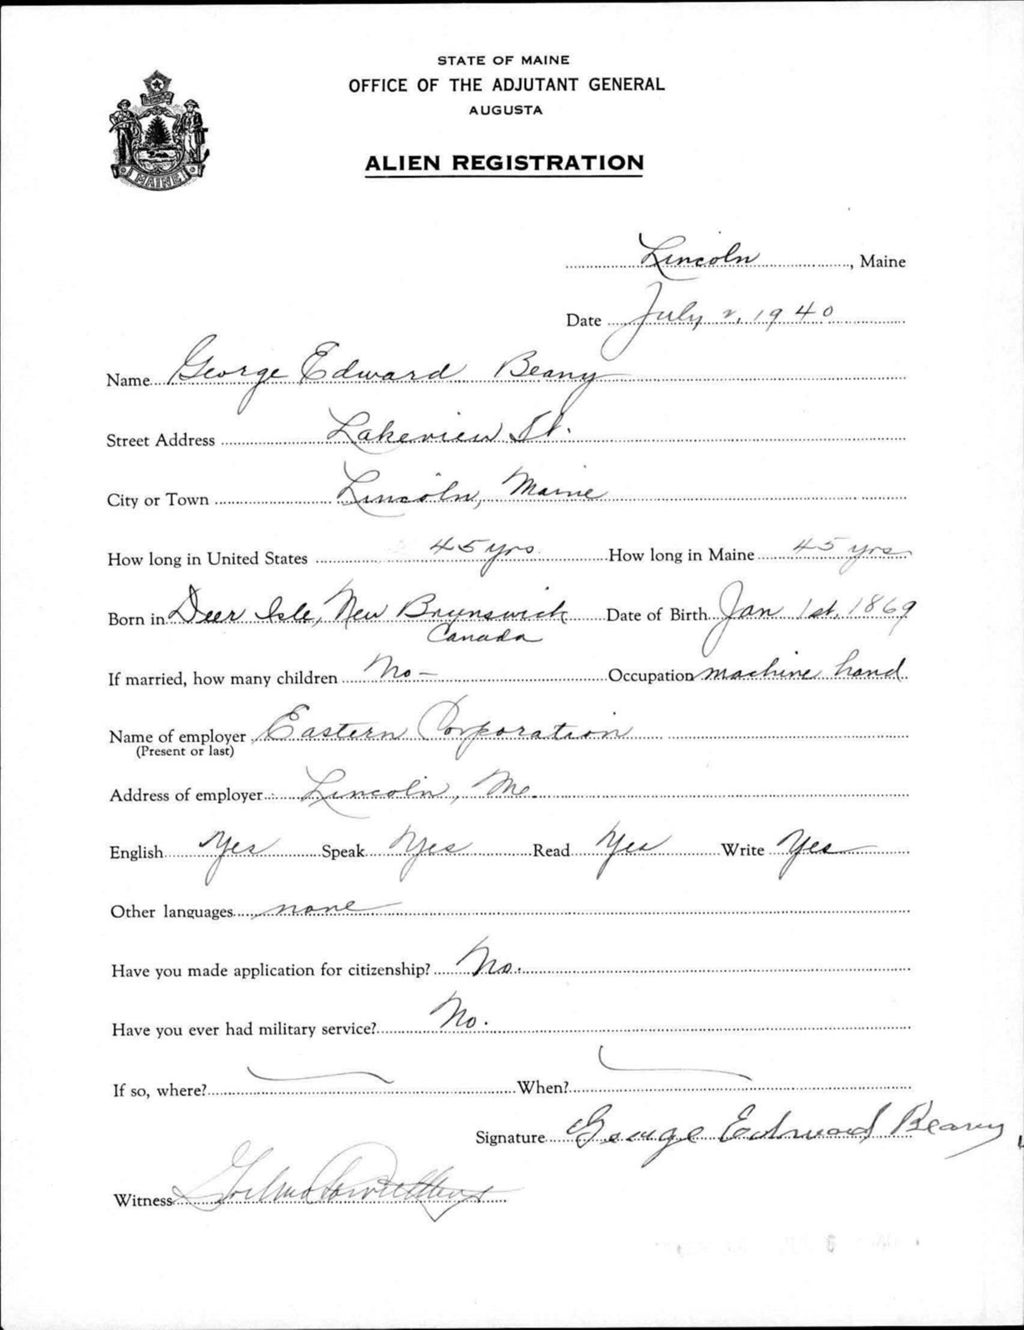 STATE OF MAINE
OFFICE OF THE ADJUTANT GENERAL
AUGUSTA
ALIEN REGISTRATION
MAINE
Lincoln, Maine
Date July 2, 1940
Name George Edward Beany
Street Address Lakeview St.
City or Town Lincoln, Maine
How long in United States 45 yrs How long in Maine 45 yrs
Born in Deer Isle, New Brunswick Date of Birth Jan 1st, 1869
Canada
If married, how many children No - Occupation machine hand
Name of employer Eastern Corporation
(Present or last)
Address of employer Lincoln, Me.
English Yes Speak Yes Read Yes Write Yes
Other languages none
Have you made application for citizenship? No.
Have you ever had military service? No.
If so, where? When?
Signature George Edward Beany
Witness